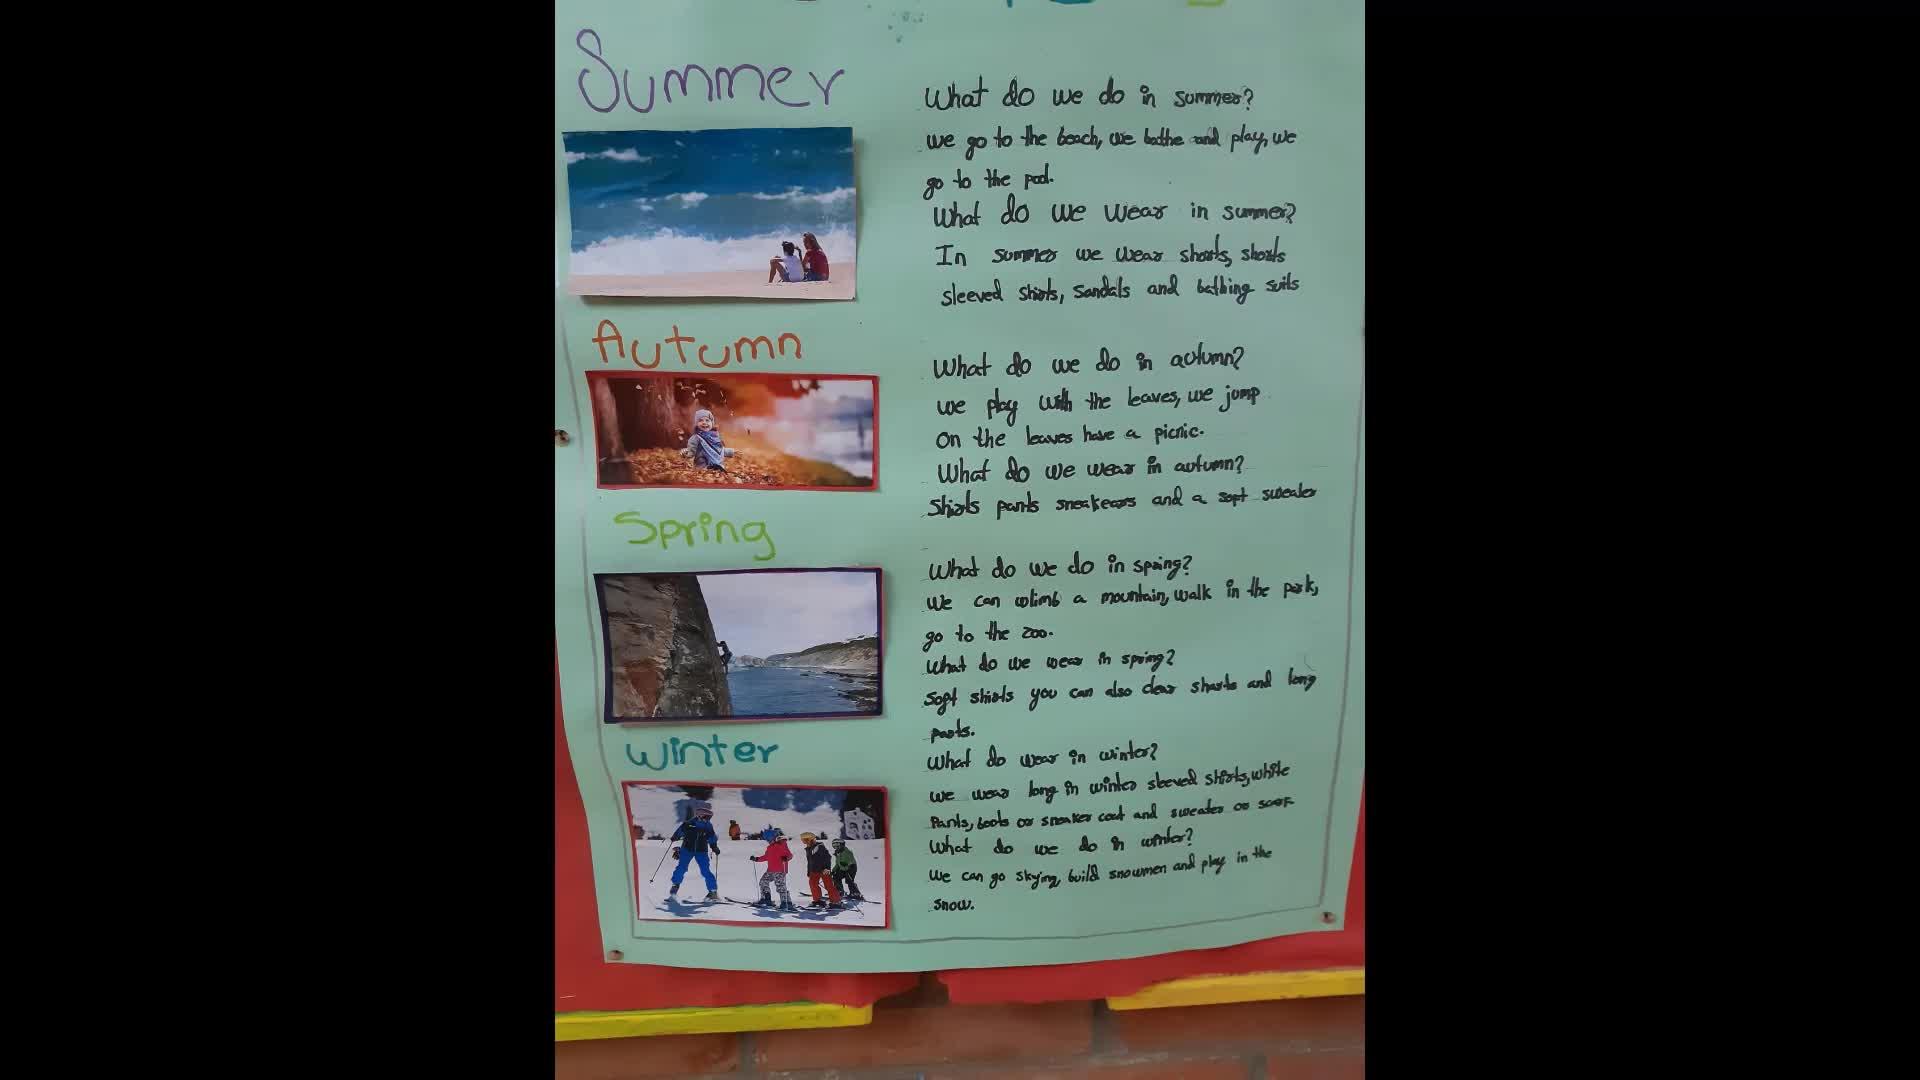 Summer
What do we do in summer?
we go to the beach, we bathe and play, we
go to the pool.
What do we wear in summer?
In summer we wear shorts, shorts
sleeved shirts, sandals and bathing suits
Autumn
What do we do in autumn?
we play with the leaves, we jump
on the leaves have a picnic.
What do we wear in autumn?
Shirts pants sneakears and a soft sweater
Spring
What do we do in spring?
We can climb a mountain, walk in the park,
go to the zoo.
What do we wear in spring?
Soft shirts you can also clear sharts and long
pants.
Winter
What do wear in winter?
we wear long in winter sleeved shirts, white
Pants, boots or sneaker coat and sweater or scarf
What do we do in winter?
We can go skying, build snowmen and play in the
snow.